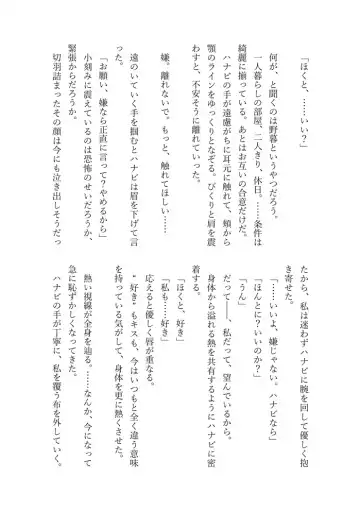 「ほくと、……いい？」
何が、と聞くのは野暮というやつだろう。
一人暮らしの部屋、二人きり、休日。……条件は
綺麗に揃っている。あとはお互いの合意だけだ。
ハナビの手が遠慮がちに耳元に触れて、頬から
顎のラインをゆっくりとなぞる。ぴくりと肩を震
わすと、不安そうに離れていった。
嫌。離れないで。もっと、触れてほしい……
遠のいていく手を掴むとハナビは眉を下げて言
った。
「お願い、嫌なら正直に言って？やめるから」
小刻みに震えているのは恐怖のせいだろうか、
緊張からだろうか。
切羽詰まったその顔は今にも泣き出しそうだっ
たから、私は迷わずハナビに腕を回して優しく抱
き寄せた。
「……いいよ、嫌じゃない。ハナビなら」
「ほんとに？いいのか？」
「うん」
だって――、私だって、望んでいるから。
身体から溢れる熱を共有するようにハナビに密
着する。
「ほくと、好き」
「私も……好き」
応えると優しく唇が重なる。
“好き”もキスも、今はいつもと全く違う意味
を持っている気がして、身体を更に熱くさせた。
熱い視線が全身を辿る。……なんか、今になって
急に恥ずかしくなってきた。
ハナビの手が丁寧に、私を覆う布を外していく。